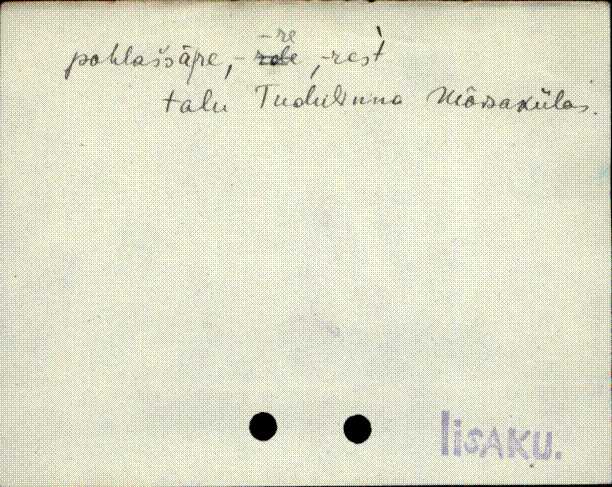 -re
pohlaššäre, - rde, -rest̀
talu Tudulinna Mõisakülas.
Iisaku.